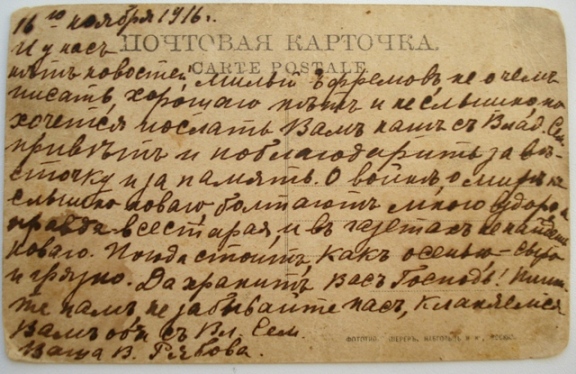 16го ноября 1916 г.
И у насъ
ПОЧТОВАЯ КАРТОЧКА.
CARTE POSTALE
нѣтъ новостей, милый Ефремовъ, не о чемъ
писать, хорошаго нѣтъ и не слышно, но
хочется послать Вамъ нашъ съ Влад. Сем.
привѣтъ и поблагодарить за вѣ-
сточку и за память. О войнѣ о мирѣ не
слышно новаго болтаютъ много
правда все старая, и въ газетахъ не найдешь
новаго. Погода стоитъ какъ осенью — сыро
и грязно. Да хранитъ Васъ Господь! Пиши-
те намъ, не забывайте насъ, кланяемся
Вамъ оба съ Вл. Сем.
Ваша В. Рябова.